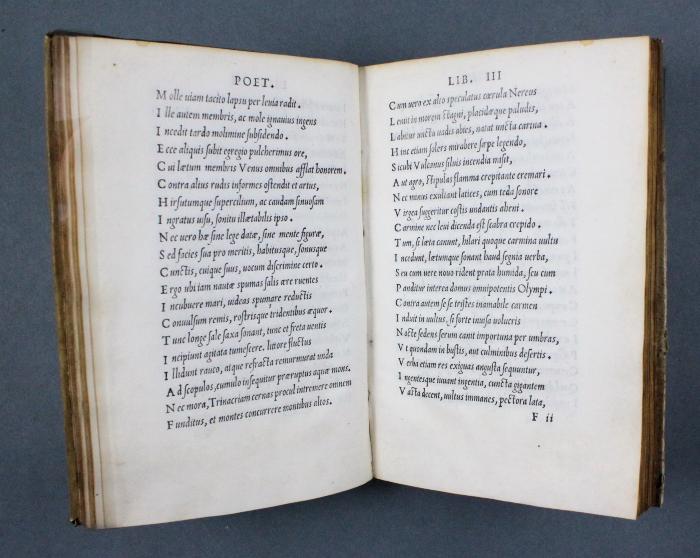 POET.
M olle uiam tacito lapsu per leuia radit.
I lle autem membris, ac mole ignauius ingens
I ncedit tardo molimine subsidendo.
E cce aliquis subit egregio pulcherimus ore,
C ui lætum membris Venus omnibus afflat honorem.
C ontra alius rudis informes ostendit et artus,
H irsutumque supercilium, ac caudam sinuosam
I ngratus uisu, sonitu illætabilis ipso.
N ec uero hæ sine lege datæ, sine mente figuræ,
S ed facies sua pro meritis, habitusque, sonusque
C unctis, cuique suus, uocum discrimine certo.
E rgo ubi iam nautæ spumas salis ære ruentes
I ncubuere mari, uideas spumare reductis
C onuulsum remis, rostrisque tridentibus æquor.
T unc longe sale saxa sonant, tunc et freta uentis
I ncipiunt agitata tumescere. littore fluctus
I llidunt rauco, atque refracta remurmurat unda
A d scopulos, cumulo insequitur præruptus aquæ mons.
N ec mora, Trinacriam cernas procul intremere omnem
F unditus, et montes concurrere montibus altos.
LIB. III
C um uero ex alto speculatus cœrula Nereus
L eniit in morem stagni, placidæque paludis,
L abitur uncta uadis abies, natat uncta carina.
H inc etiam solers mirabere sæpe legendo,
S icubi Vulcanus siluis incendia misit,
A ut agro, stipulas flamma crepitante cremari.
N ec minus exultant latices, cum teda sonore
V irgea suggeritur costis undantis aheni.
C armine nec leui dicenda est scabra crepido.
T um, si læta canunt, hilari quoque carmina uultu
I ncedunt, lætumque sonant haud segnia uerba,
S eu cum uere nouo rident prata humida, seu cum
P anditur interea domus omnipotentis Olympi.
C ontra autem se se tristes inamabile carmen
I nduit in uultus, si forte inuisa uolucris
N acte sedens serum canit importuna per umbras,
V t quondam in bustis, aut culminibus desertis.
V erba etiam res exiguas angusta sequuntur,
I ngentesque iuuant ingentia, cuncta gigantem
V asta decent, uultus immanes, pectora lata,
F ii